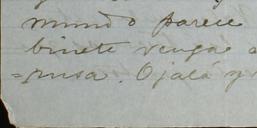 mundo parece
binete vengas a
=prisa. Ojalá y